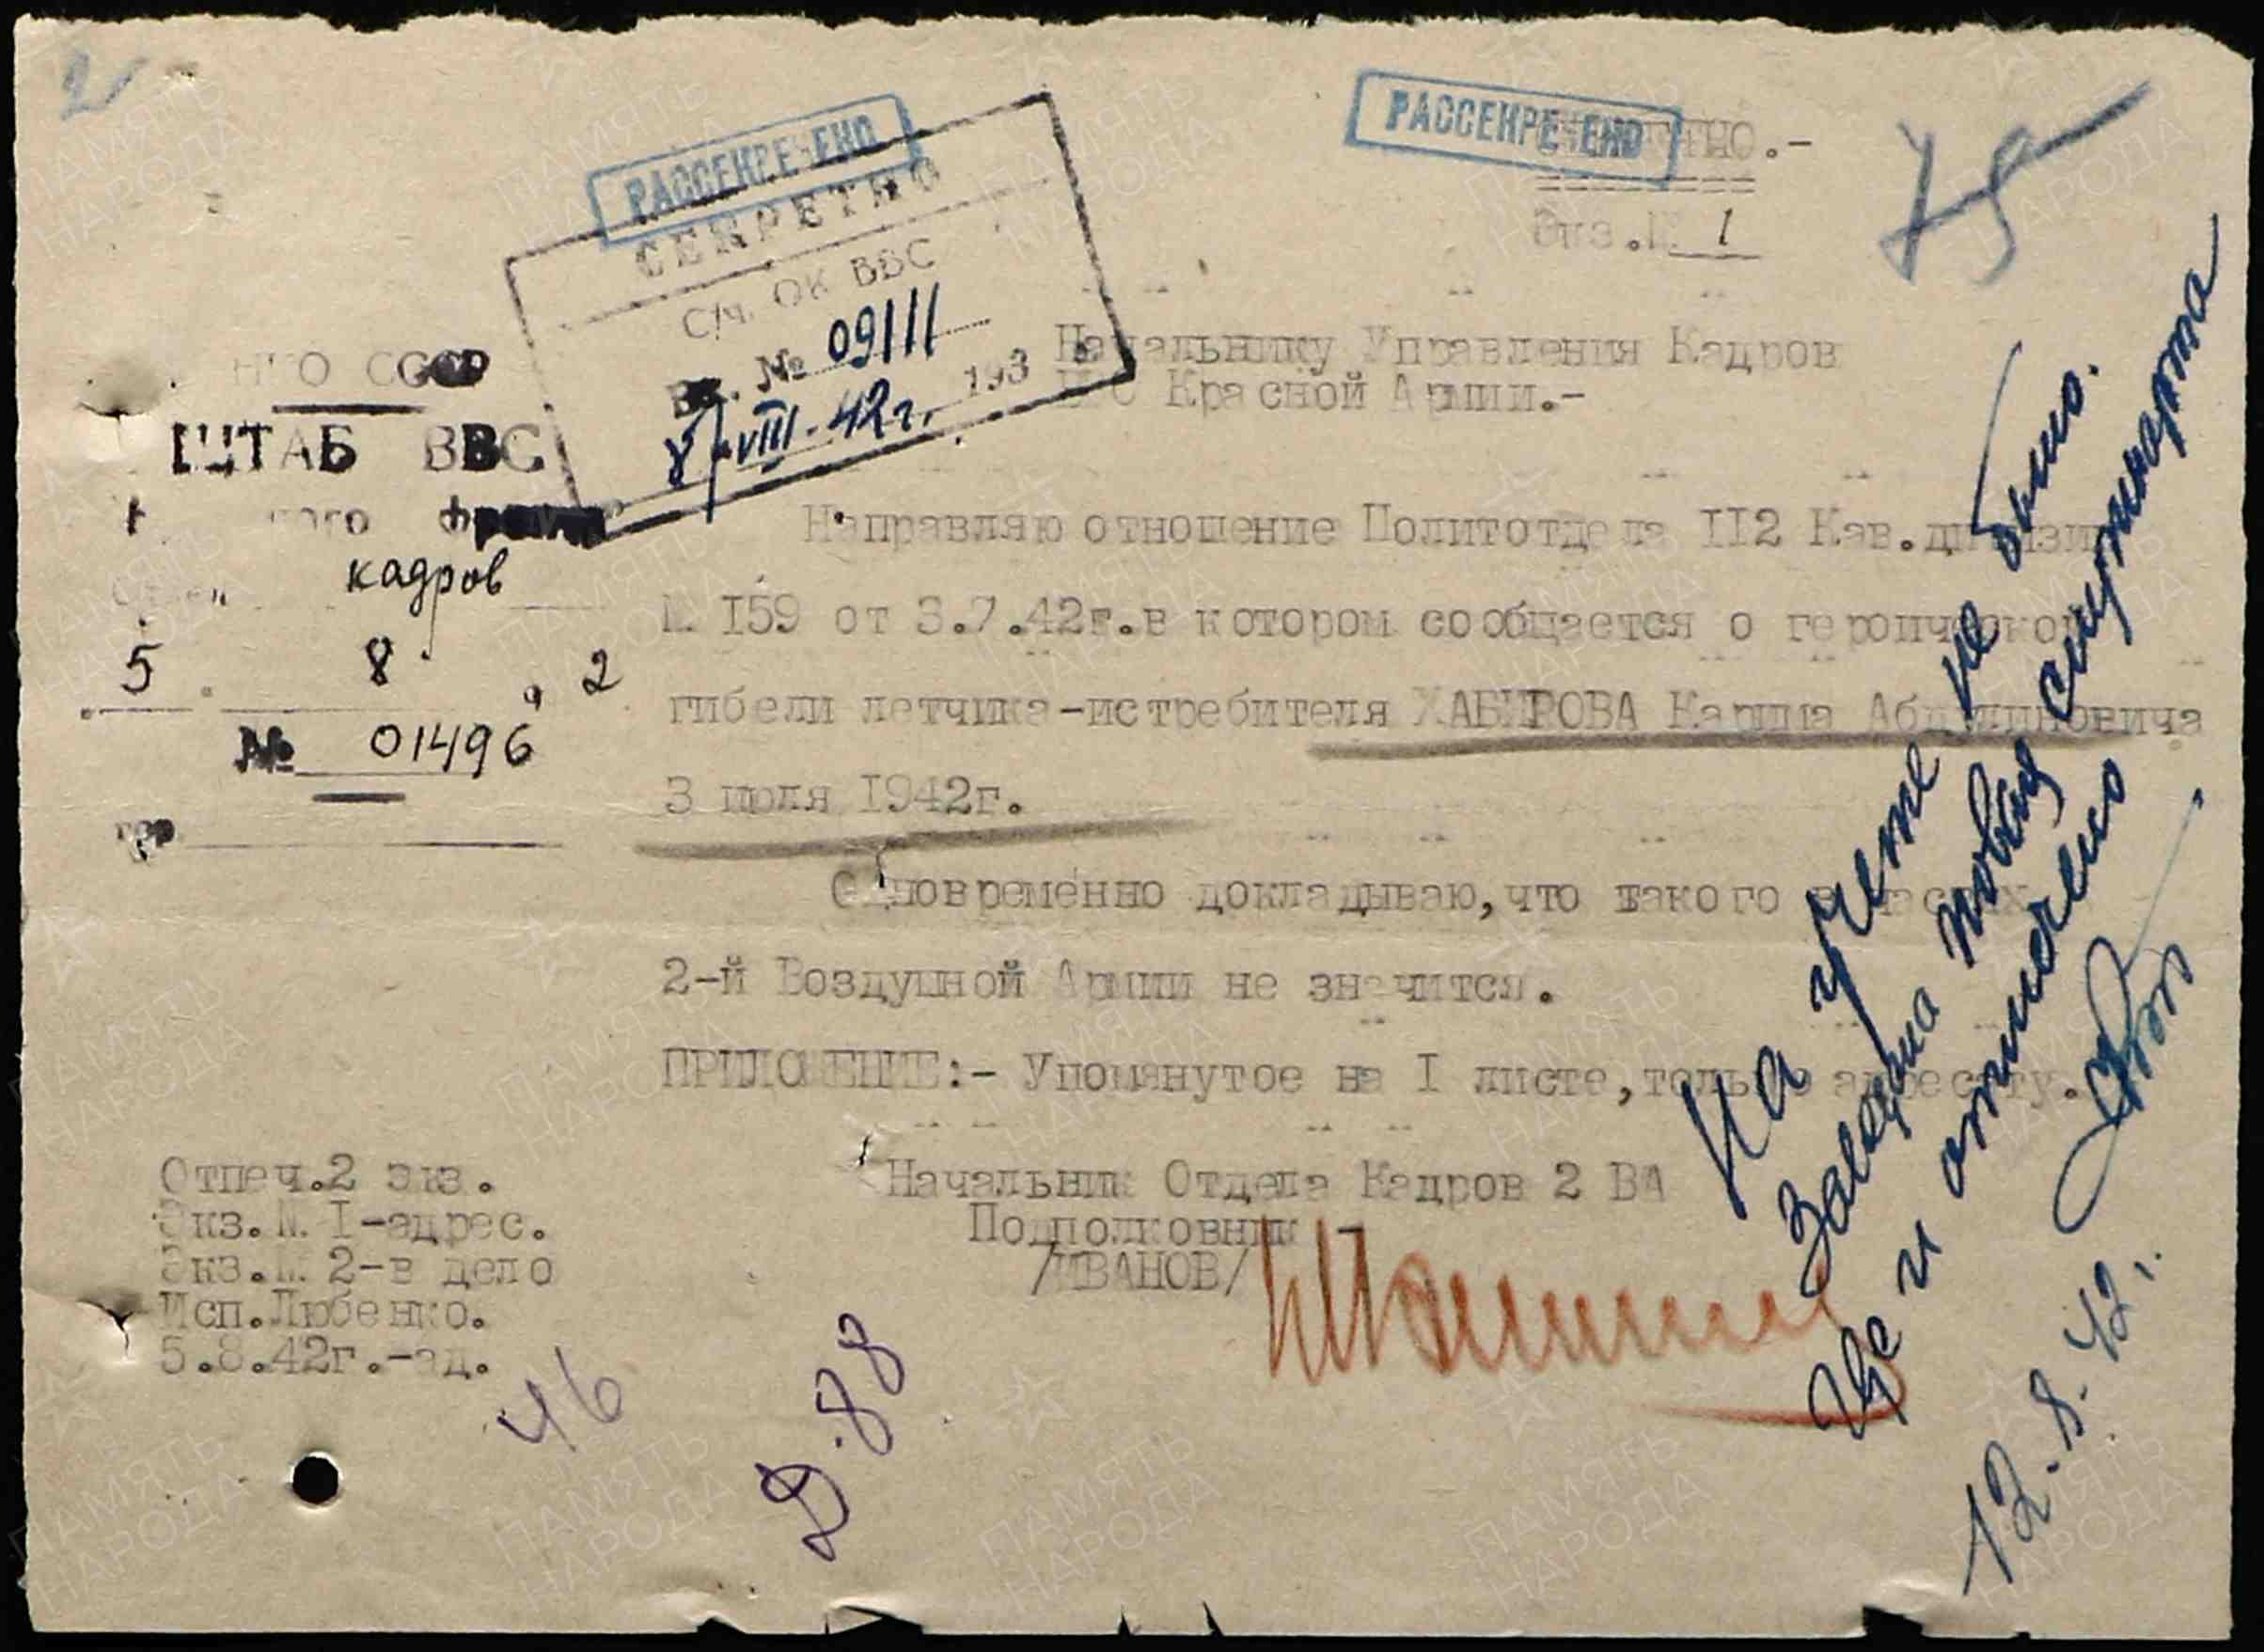 2
РАССЕКРЕЧЕНО
РАССЕКРЕЧЕНО
СЕКРЕТНО.-
75
Экз.№ 1
СЕКРЕТНО
С/ч. ОК ВВС
Вх. № 09111
8/VIII-42г. 193
НКО СССР
ШТАБ ВВС
фронта
Отдел кадров
5 8 2
№ 01496
гор.
Начальнику Управления Кадров
ВВС Красной Армии.-
Направляю отношение Политотдела II2 Кав.дивизии
№ I59 от 3.7.42г.в котором сообщается о героической
гибели летчика-истребителя ХАБИРОВА Карима
3 июля I942г.
Одновременно докладываю,что такого в частях
2-й Воздушной Армии не значится.
ПРИЛОЖЕНИЕ:- Упомянутое на I листе,только адресату.
Начальник Отдела Кадров 2 ВА
Подполковник -
/ИВАНОВ/
Отпеч.2 экз.
Экз.№ I-адрес.
Экз.№ 2-в дело
Исп.Любенко.
5.8.42г.-ад.
46
Д.88
На учете не было.
Заведена новая служкарта
и отмечено
12.8.42г.
ПАМЯТЬ НАРОДА